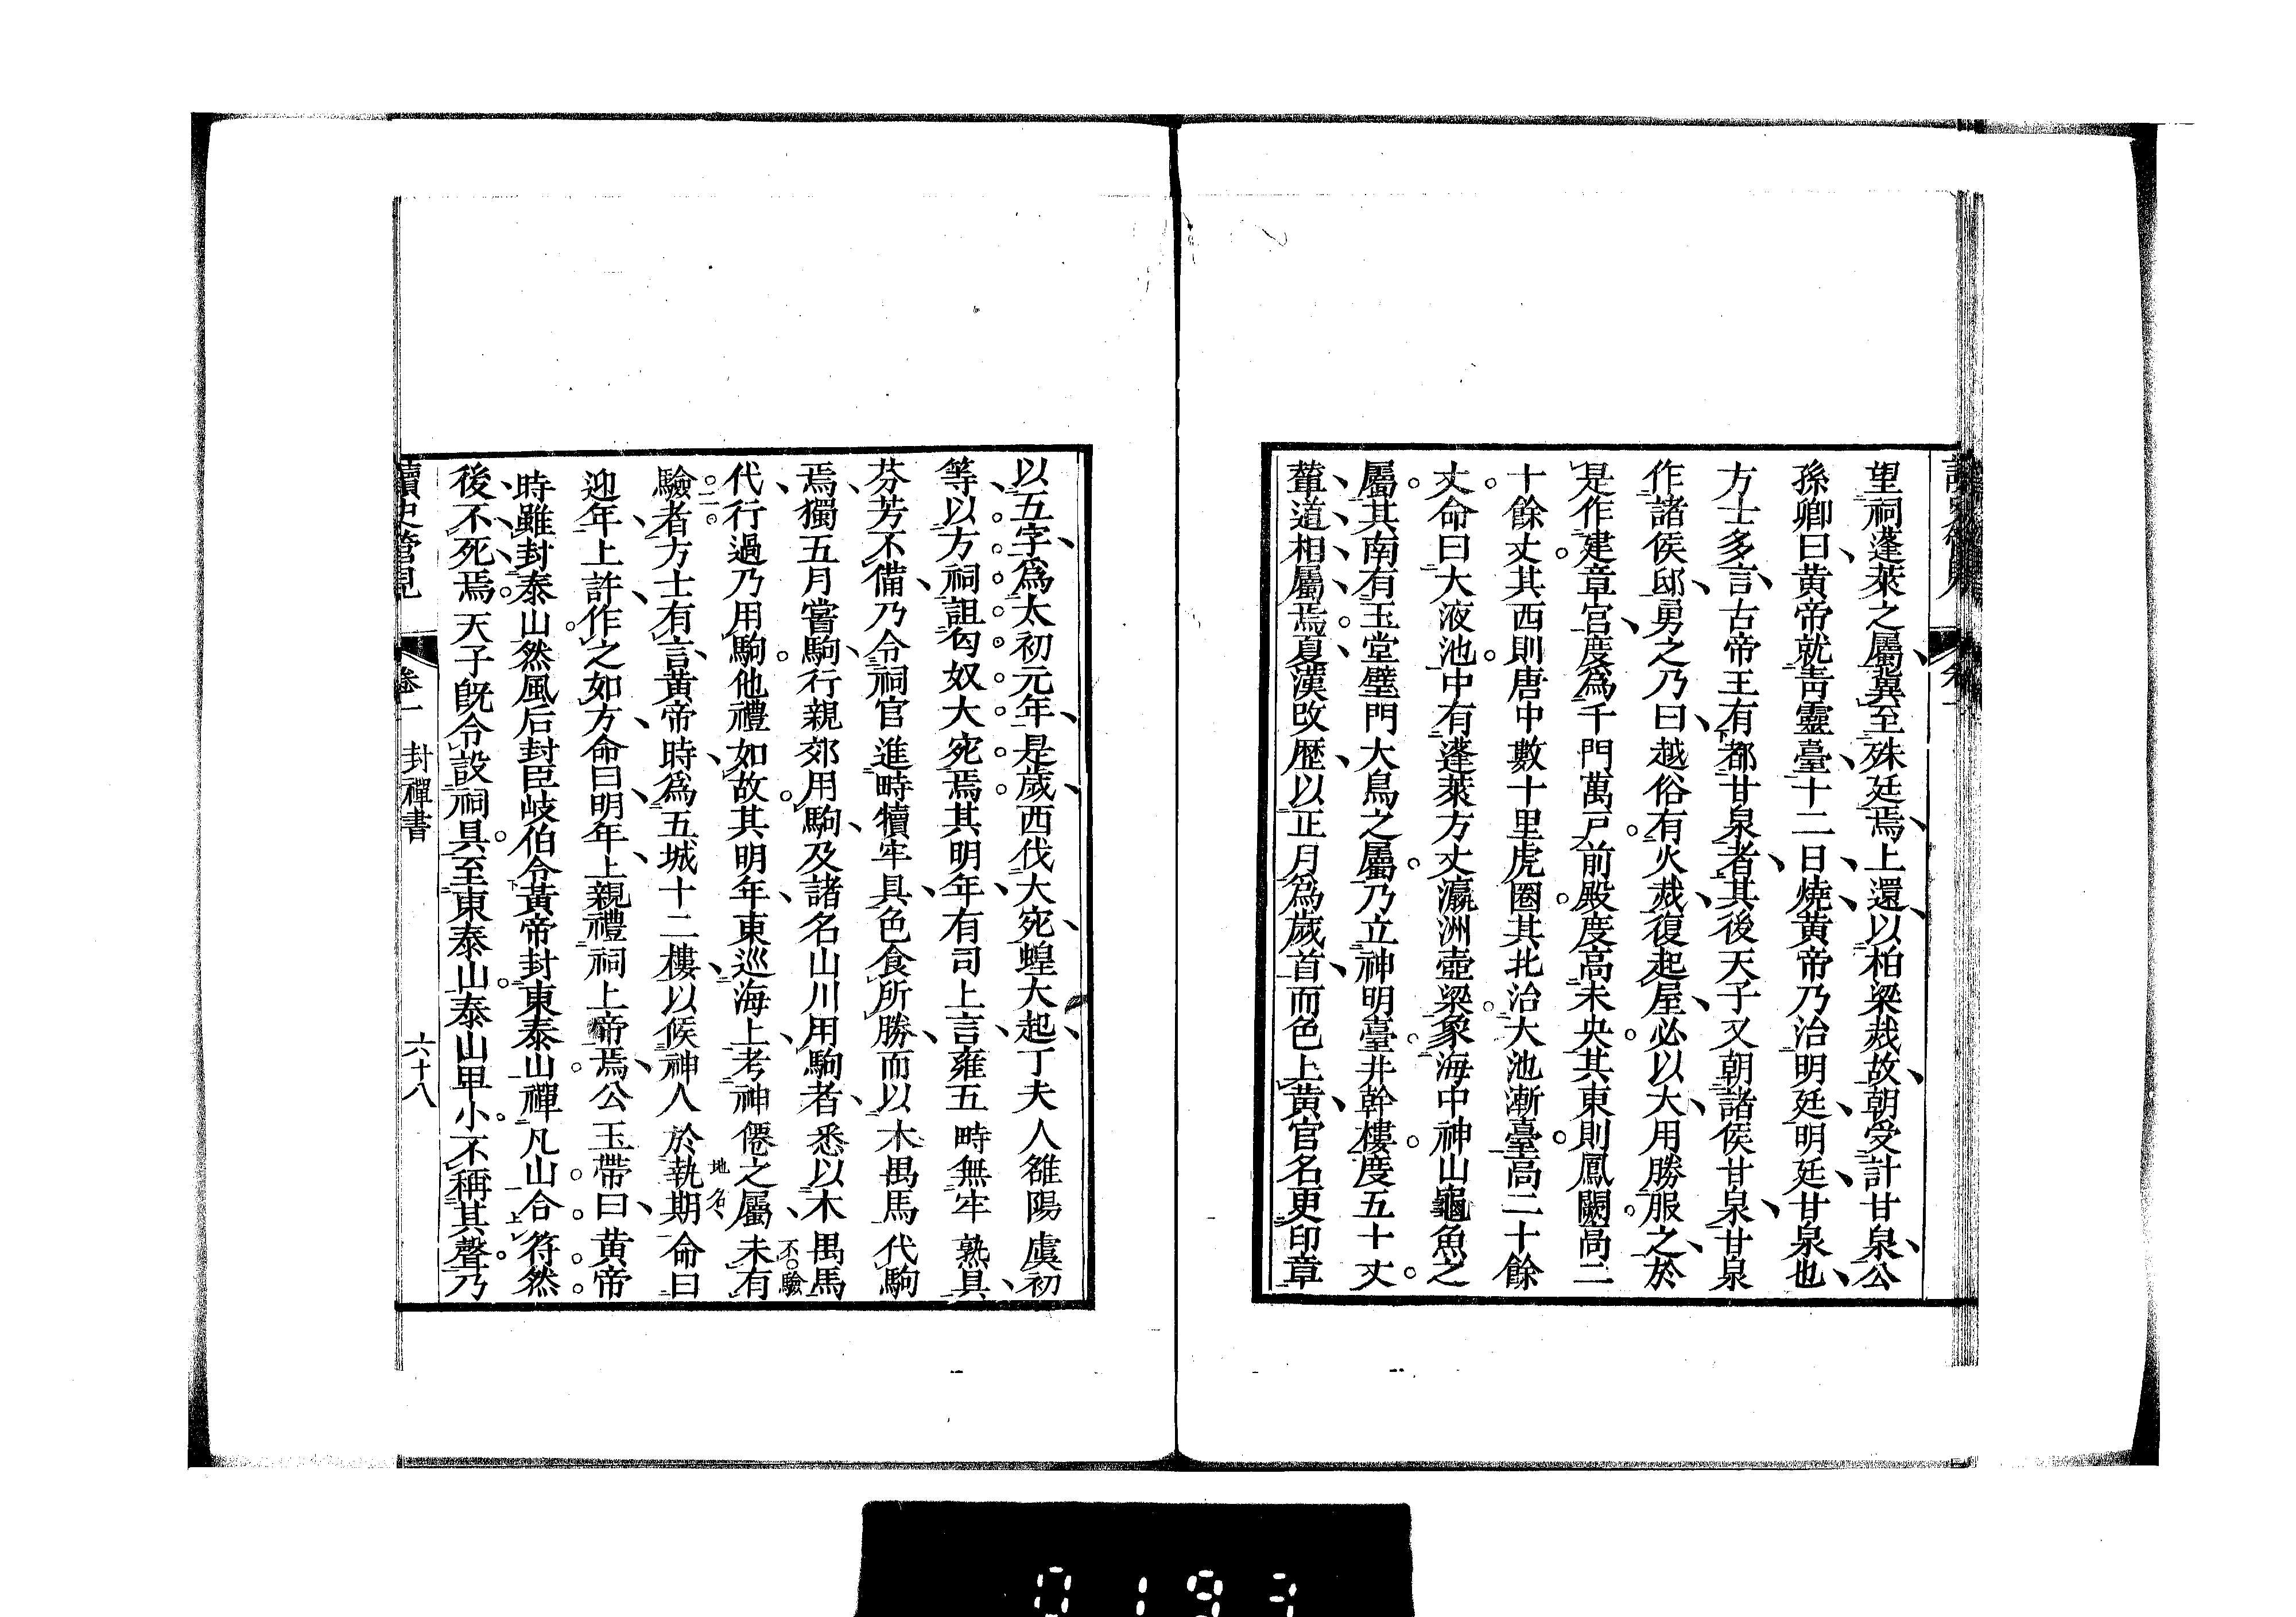 望祠蓬萊之屬冀至殊廷焉上還以柏梁烖故朝受計甘泉公
孫卿曰黃帝就靑靈臺十二日燒黃帝乃治明廷明廷甘泉也
方士多言古帝王有都甘泉者其後天子又朝諸侯甘泉甘泉
作諸侯邸勇之乃曰越俗有火烖復起屋必以大用勝服之於
是作建章宮度爲千門萬戸前殿度高未央其東則鳳闕高二
十餘丈其西則唐中數十里虎圈其北治大池漸臺高二十餘
丈命曰大液池中有蓬萊方丈瀛洲壺梁象海中神山龜魚之
屬其南有玉堂璧門大鳥之屬乃立神明臺井幹樓度五十丈
輦道相屬焉夏漢改歴以正月爲歲首而色上黃官名更印章
以五字爲太初元年是歲西伐大宛蝗大起丁夫人雒陽虞初
等以方祠詛匈奴大宛焉其明年有司上言雍五畤無牢熟具
芬芳不備乃令祠官進畤犢牢具色食所勝而以木禺馬代駒
焉獨五月嘗駒行親郊用駒及諸名山川用駒者悉以木禺馬
代行過乃用駒他禮如故其明年東巡海上考神僊之屬未有
不驗
驗者方士有言黃帝時爲五城十二樓以候神人於執期命曰
地名
迎年上許作之如方命曰明年上親禮祠上帝焉公玉帶曰黃帝
時雖封泰山然風后封臣岐伯令黃帝封東泰山禪凡山合符然
後不死焉天子旣令設祠具至東泰山泰山卑小不稱其聲乃
讀史管見 卷一 封禪書 六十八